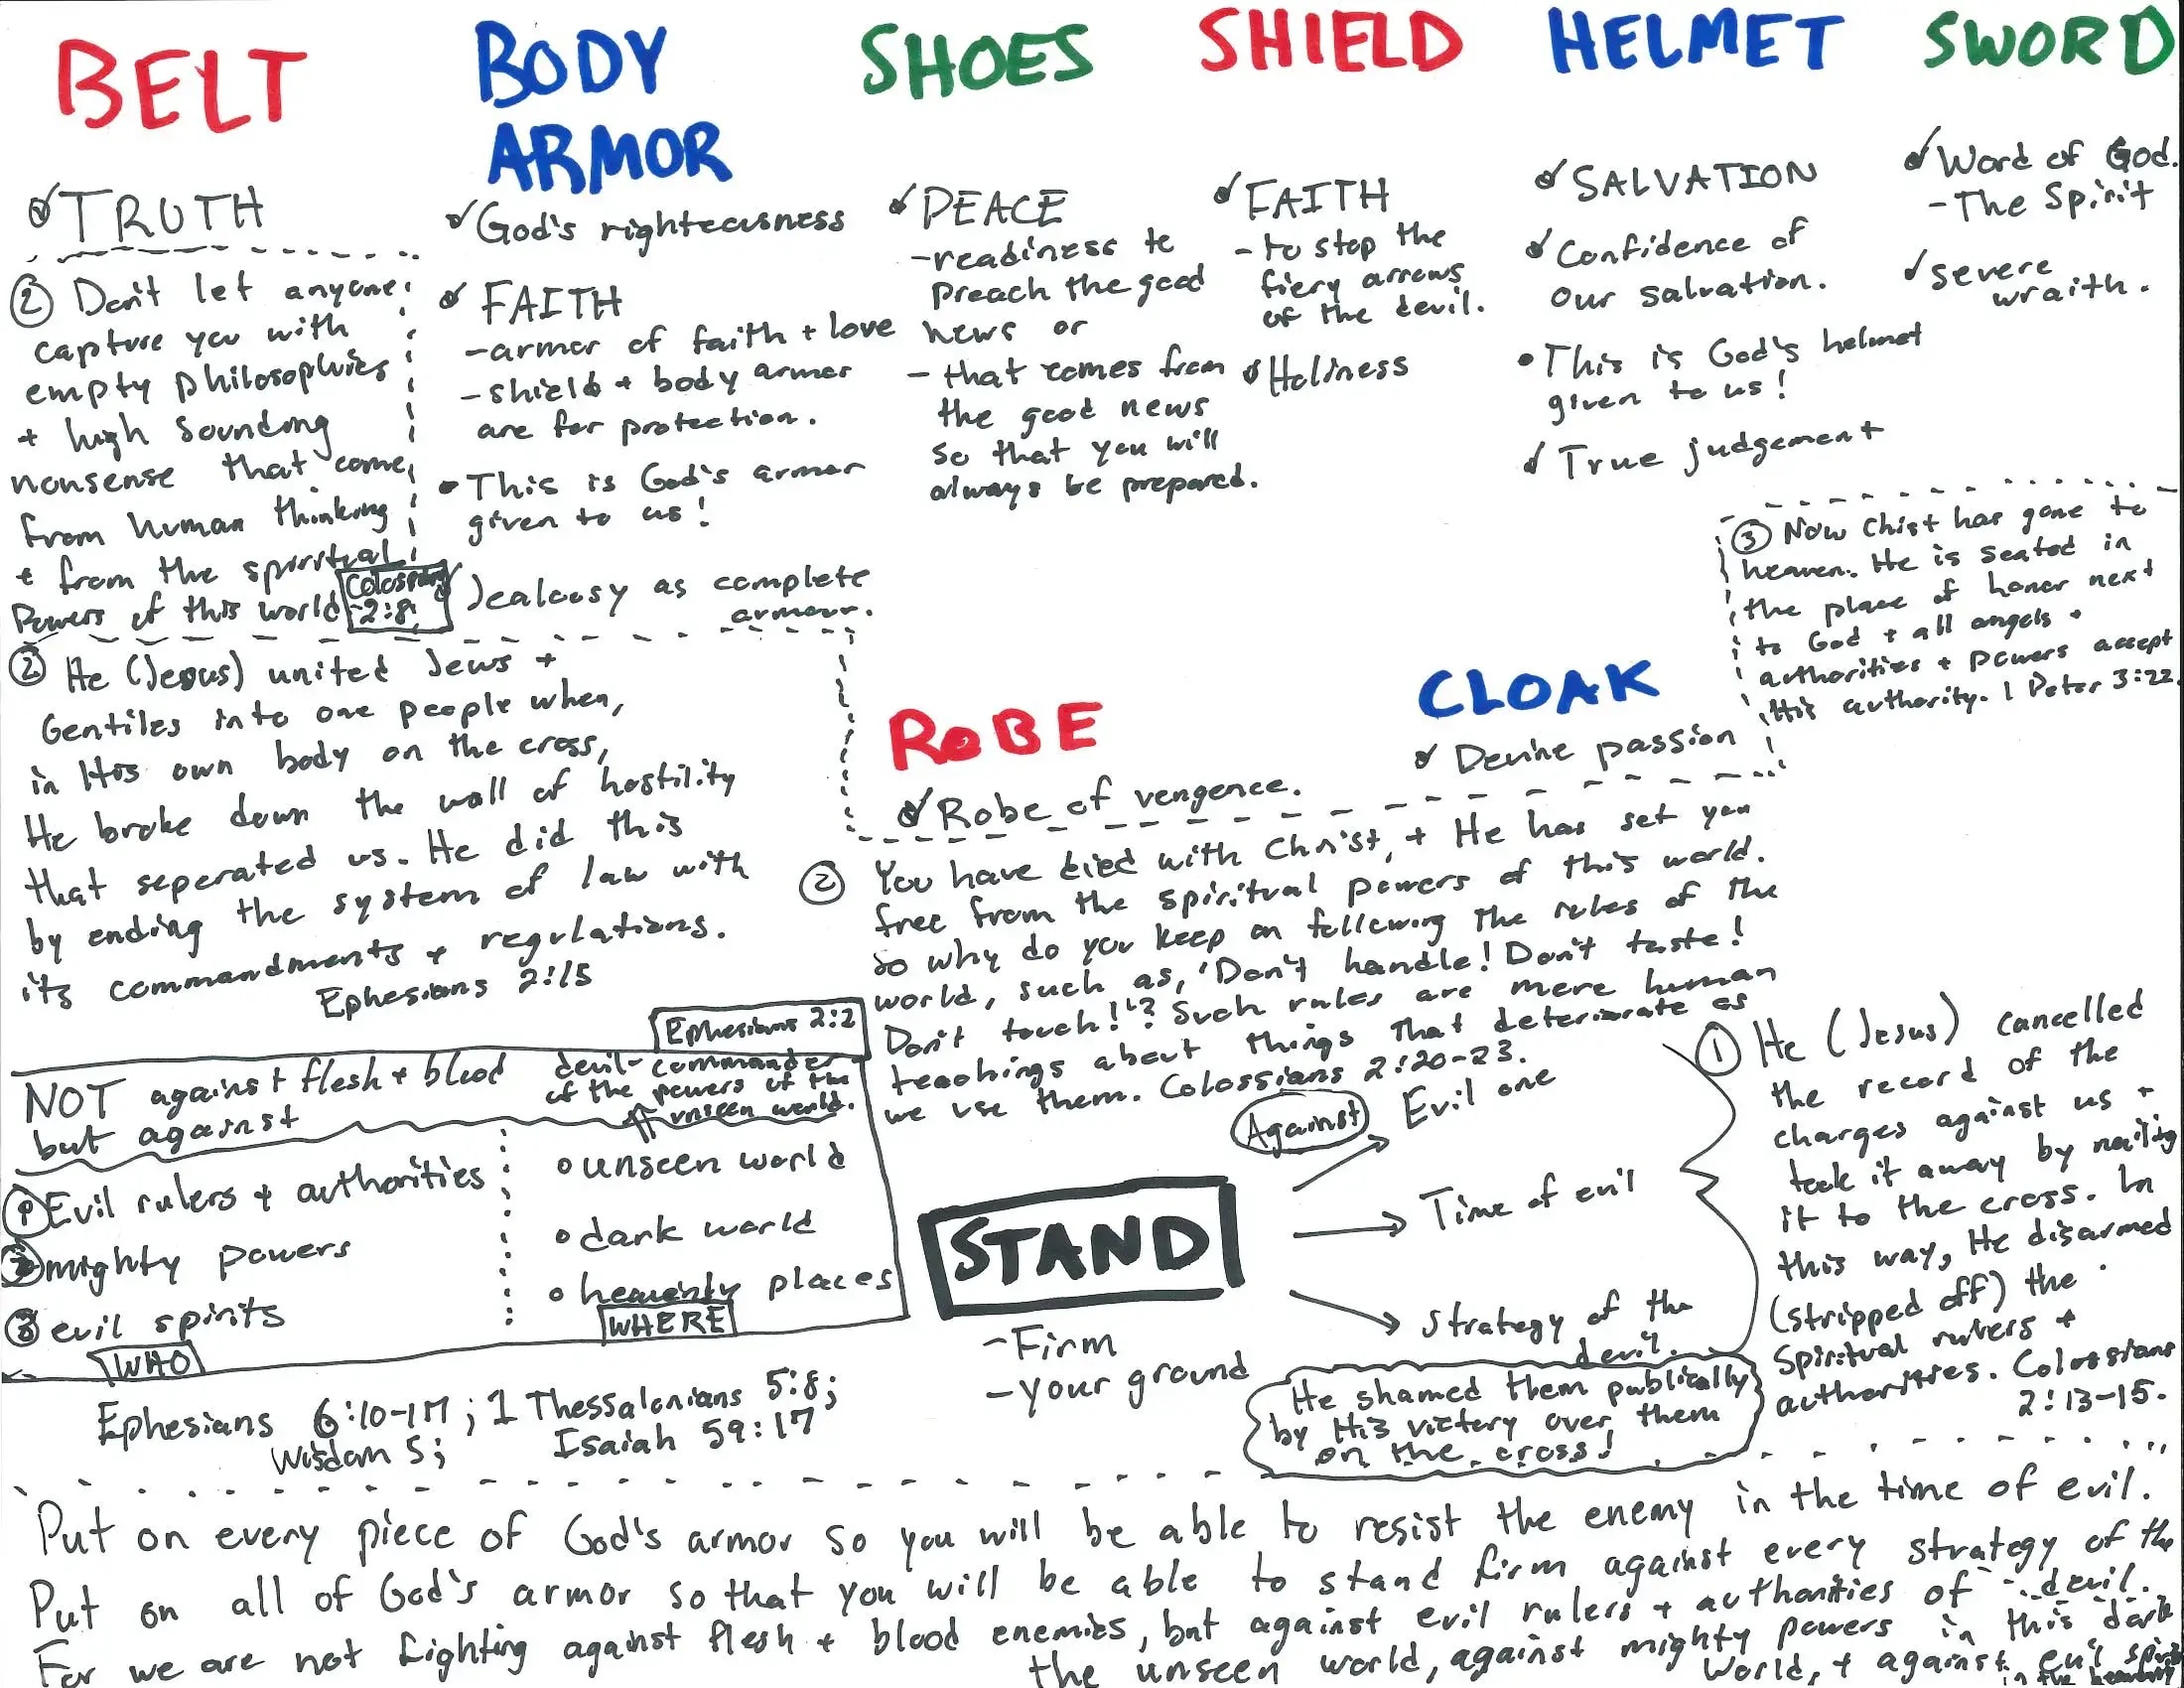 BELT
BODY
ARMOR
SHOES
SHIELD
HELMET
SWORD
TRUTH
② Don't let anyone
capture you with
empty philosophies
+ high sounding
nonsense that come
from human thinking
+ from the spiritual
Powers of this world
Colossians
2:8
God's righteousness
FAITH
- armor of faith + love
- shield + body armor
are for protection.
• This is God's armor
given to us!
Jealousy as complete
armour.
PEACE
- readiness to
preach the good
news or
- that comes from
the good news
so that you will
always be prepared.
FAITH
- to stop the
fiery arrows
of the devil.
Holiness
SALVATION
Confidence of
our salvation.
• This is God's helmet
given to us!
True judgement
Word of God.
- The Spirit
severe
wraith.
③ Now Christ has gone to
heaven. He is seated in
the place of honor next
to God + all angels +
authorities + powers accept
His authority. 1 Peter 3:22.
② He (Jesus) united Jews +
Gentiles into one people when,
in His own body on the cross,
He broke down the wall of hostility
that seperated us. He did this
by ending the system of law with
its commandments + regulations.
Ephesians 2:15
ROBE
Robe of vengence.
CLOAK
Devine passion
② You have died with Christ, + He has set you
free from the spiritual powers of this world.
So why do you keep on following the rules of the
world, such as, 'Don't handle! Don't taste!
Don't touch!'? Such rules are mere human
teachings about things that deteriorate as
we use them. Colossians 2:20-23.
Ephesians 2:2
NOT against flesh + blood
but against
devil- commander
of the powers of the
unseen world.
Evil rulers + authorities
mighty powers
evil spirits
WHO
• unseen world
• dark world
• heavenly places
WHERE
Ephesians 6:10-17; 1 Thessalonians 5:8;
Wisdom 5; Isaiah 59:17
STAND
- Firm
- your ground
Against
Evil one
Time of evil
Strategy of the
devil.
① He (Jesus) cancelled
the record of the
charges against us +
took it away by nailing
it to the cross. In
this way, He disarmed
(stripped off) the
Spiritual rulers +
authorities. Colossians
2:13-15.
He shamed them publically
by His victory over them
on the cross!
Put on every piece of God's armor so you will be able to resist the enemy in the time of evil.
Put on all of God's armor so that you will be able to stand firm against every strategy of the
devil.
For we are not fighting against flesh + blood enemies, but against evil rulers + authorities of
the unseen world, against mighty powers in this dark
world, + against evil spirits
in the heavenly